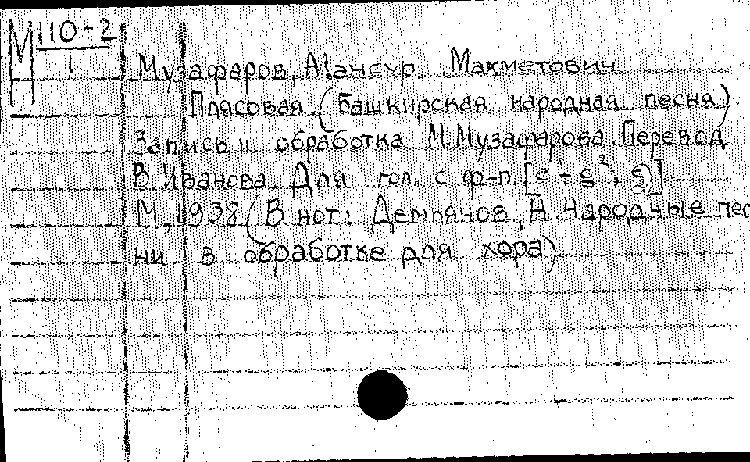 М 110-2
1
Музафаров, Мансур Махметович
Плясовая (Башкирская народная песня)
Запись и обработка М. Музафарова. Перевод
В. Иванова. Для гол. с ф-п.
М., 1938 (В нот.: Демьянов, Н. Народные пес
ни в обработке для хора)